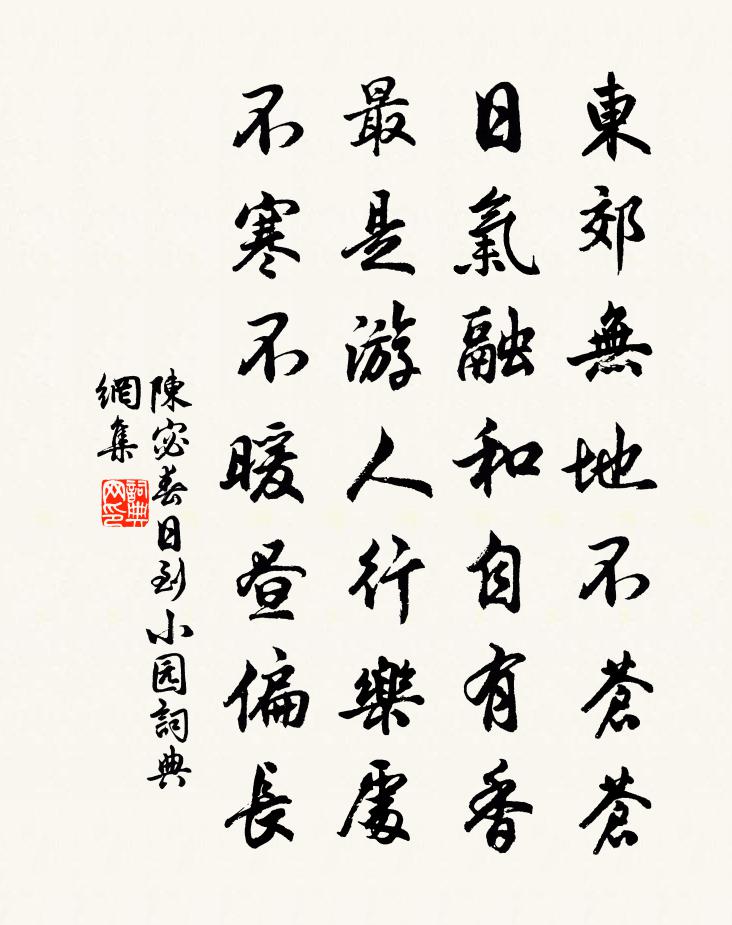 東郊無地不蒼蒼
日氣融和自有香
最是游人行樂處
不寒不暖昼偏長
陳宓春日到小园詞典
網集
詞典
网印